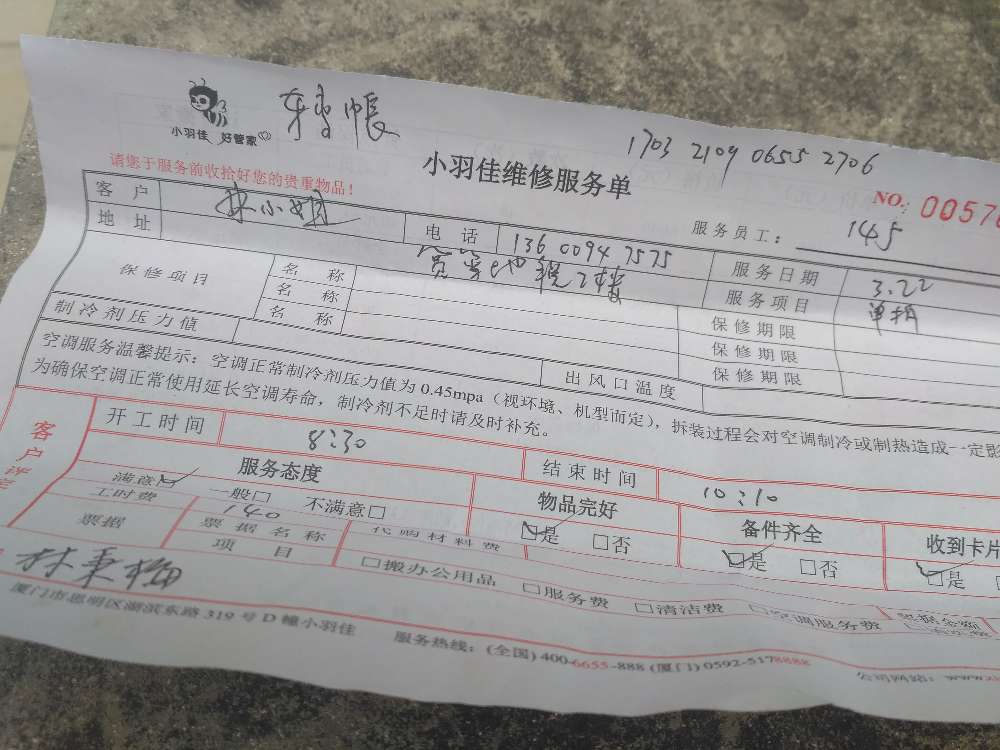 转帐
1703 2109 0655 2706
小羽佳 好管家
小羽佳维修服务单
NO.: 00570
请您于服务前收拾好您的贵重物品！
服务员工： 145
客户 林小姐 电话 136 0094 7575 服务日期 3.22
地址 2楼 服务项目 单拆
保修项目 名称 保修期限
名称 保修期限
名称 保修期限
制冷剂压力值 出风口温度
空调服务温馨提示：空调正常制冷剂压力值为0.45mpa（视环境、机型而定），拆装过程会对空调制冷或制热造成一定影
为确保空调正常使用延长空调寿命，制冷剂不足时请及时补充。
客户评定
开工时间 8:30 结束时间 10:10
服务态度 物品完好 备件齐全 收到卡片
满意□ 一般□ 不满意□ □是 □否 □是 □否 □是
工时费 140 代购材料费 票据金额
票据 票据名称
项目 □搬办公用品 □服务费 □清洁费 □空调服务费
林秉梅
厦门市思明区湖滨东路319号D幢小羽佳 服务热线：(全国) 400-6655-888 (厦门) 0592-5178888 公司网站：www.x